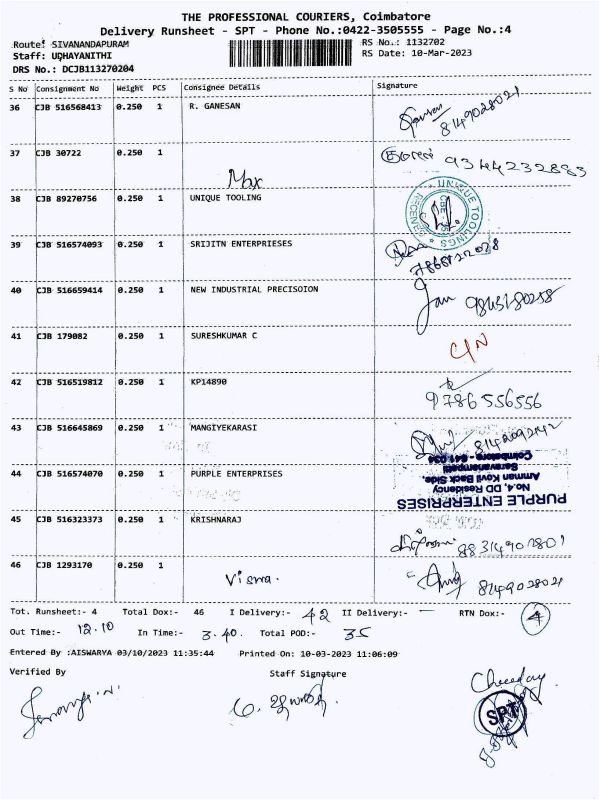 THE PROFESSIONAL COURIERS, Coimbatore
Delivery Runsheet - SPT - Phone No.:0422-3505555 - Page No.:4
Route: SIVANANDAPURAM
Staff: UDHAYANITHI
DRS No.: DCJB113270204
RS No.: 1132702
RS Date: 10-Mar-2023
S No Consignment No Weight PCS Consignee Details Signature
36 CJB 516568413 0.250 1 R. GANESAN 8149028021
37 CJB 30722 0.250 1 Max 9344232883
38 CJB 89270756 0.250 1 UNIQUE TOOLING
UNIQUE TOOLINGS
39 CJB 516574093 0.250 1 SRIJITN ENTERPRIESES
40 CJB 516659414 0.250 1 NEW INDUSTRIAL PRECISOION
41 CJB 179082 0.250 1 SURESHKUMAR C
42 CJB 516519812 0.250 1 KP14890 9786556556
43 CJB 516645869 0.250 1 MANGIYEKARASI
44 CJB 516574070 0.250 1 PURPLE ENTERPRISES
PURPLE ENTERPRISES
No.4, DD Residency
Amman Kovil Back Side,
Saravanampatti
Coimbatore - 641 035
45 CJB 516323373 0.250 1 KRISHNARAJ
46 CJB 1293170 0.250 1 Viswa. 8149028021
Tot. Runsheet:- 4 Total Dox:- 46 I Delivery:- 42 II Delivery:- — RTN Dox:- 4
Out Time:- 12.10 In Time:- 3.40. Total POD:- 35
Entered By :AISWARYA 03/10/2023 11:35:44 Printed On: 10-03-2023 11:06:09
Verified By Staff Signature
SPT